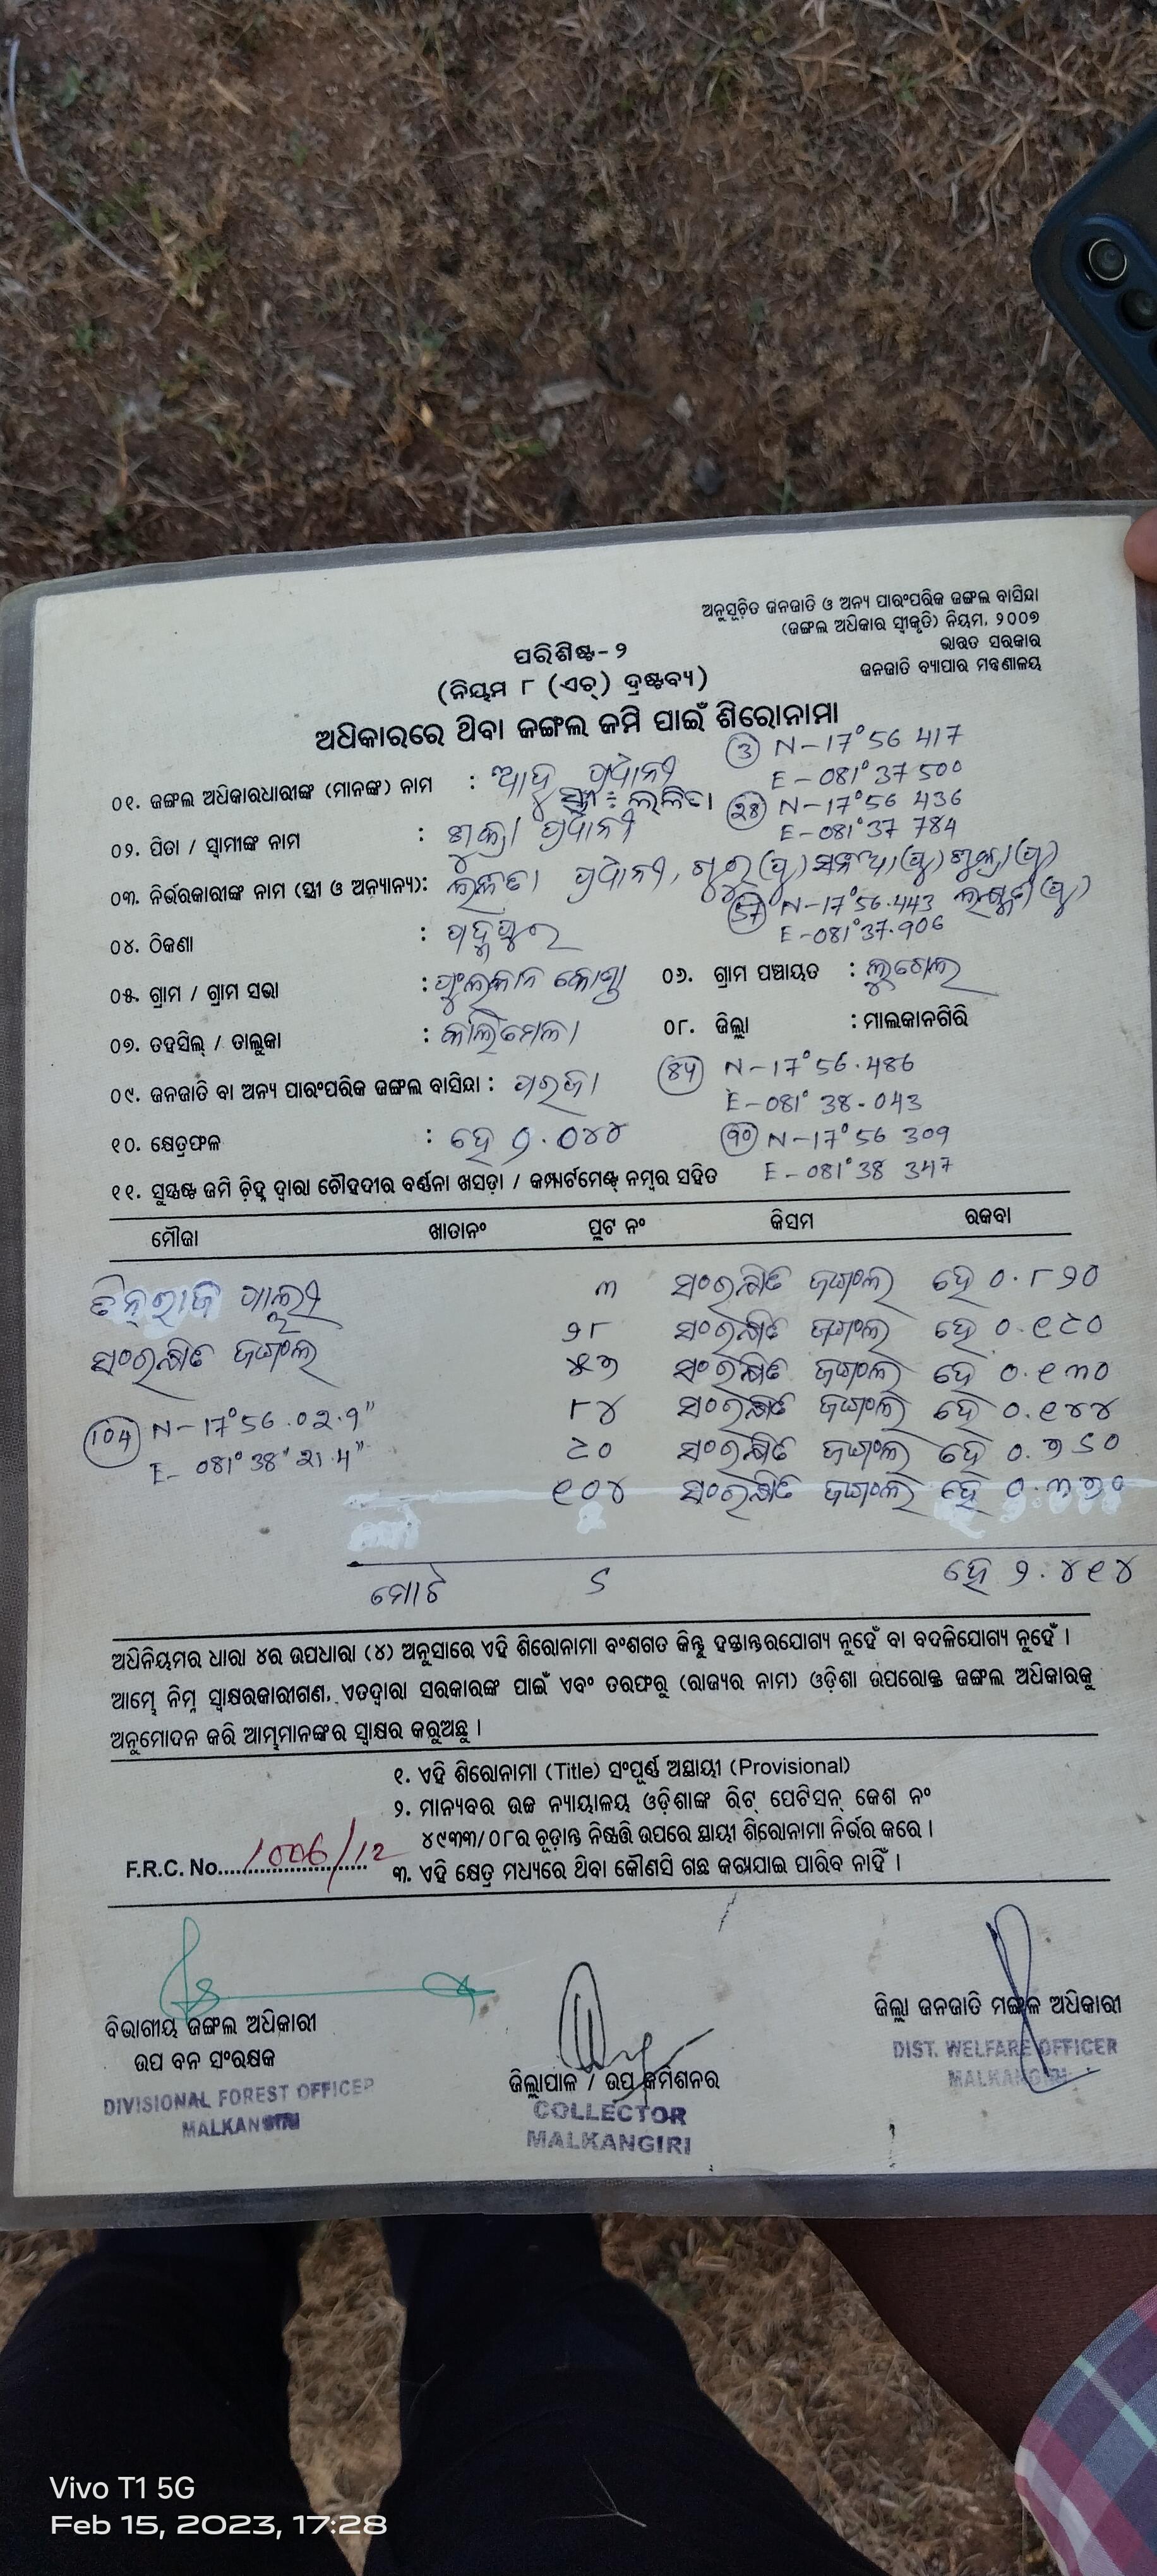 ଅନୁସୂଚିତ ଜନଜାତି ଓ ଅନ୍ୟ ପାରଂପରିକ ଜଙ୍ଗଲ ବାସିନ୍ଦା
(ଜଙ୍ଗଲ ଅଧିକାର ସ୍ୱୀକୃତି) ନିୟମ, ୨୦୦୭
ଭାରତ ସରକାର
ଜନଜାତି ବ୍ୟାପାର ମନ୍ତ୍ରଣାଳୟ
ପରିଶିଷ୍ଟ-୨
(ନିୟମ ୮ (ଏଚ୍) ଦ୍ରଷ୍ଟବ୍ୟ)
ଅଧିକାରରେ ଥିବା ଜଙ୍ଗଲ ଜମି ପାଇଁ ଶିରୋନାମା
3 N-17°56 417
E-081°37 500
୦୧. ଜଙ୍ଗଲ ଅଧିକାରଧାରୀଙ୍କ (ମାନଙ୍କ) ନାମ :
ସ୍ତ୍ରୀ ଲଳିତା
N-17°56 436
E-081°37 784
୦୨. ପିତା / ସ୍ୱାମୀଙ୍କ ନାମ :
୦୩. ନିର୍ଭରକାରୀଙ୍କ ନାମ (ସ୍ତ୍ରୀ ଓ ଅନ୍ୟାନ୍ୟ): ଲଳିତା
57 N-17°56.443
E-081°37.906
୦୪. ଠିକଣା :
୦୫. ଗ୍ରାମ / ଗ୍ରାମ ସଭା : ୦୬. ଗ୍ରାମ ପଞ୍ଚାୟତ :
୦୭. ତହସିଲ୍ / ତାଲୁକା : କାଲିମେଳା ୦୮. ଜିଲ୍ଲା : ମାଲକାନଗିରି
୦୯. ଜନଜାତି ବା ଅନ୍ୟ ପାରଂପରିକ ଜଙ୍ଗଲ ବାସିନ୍ଦା : ପରଜା
N-17°56.486
E-081°38.043
୧୦. କ୍ଷେତ୍ରଫଳ : ହେ
N-17°56 309
E-081°38 347
୧୧. ସୁସ୍ପଷ୍ଟ ଜମି ଚିହ୍ନ ଦ୍ୱାରା ଚୌହଦୀର ବର୍ଣ୍ଣନା ଖସଡ଼ା / କମ୍ପାର୍ଟମେଣ୍ଟ ନମ୍ବର ସହିତ
ମୌଜା ଖାତାନଂ ପ୍ଲଟ ନଂ କିସମ ରକବା
୩ ସଂରକ୍ଷିତ ଜଙ୍ଗଲ ହେ ୦.୮୨୦
ସଂରକ୍ଷିତ ଜଙ୍ଗଲ ୨୮ ସଂରକ୍ଷିତ ଜଙ୍ଗଲ ହେ ୦.୧୯୦
୫୭ ସଂରକ୍ଷିତ ଜଙ୍ଗଲ ହେ ୦.୧୩୦
104 N-17°56.02.9"
E-081°38'21.4"
୮୪ ସଂରକ୍ଷିତ ଜଙ୍ଗଲ ହେ ୦.୧୪୪
୯୦ ସଂରକ୍ଷିତ ଜଙ୍ଗଲ ହେ ୦.୭୬୦
୧୦୪ ସଂରକ୍ଷିତ ଜଙ୍ଗଲ ହେ ୦.୩୭୦
ମୋଟ ୬ ହେ ୨.୪୧୪
ଅଧିନିୟମର ଧାରା ୪ର ଉପଧାରା (୪) ଅନୁସାରେ ଏହି ଶିରୋନାମା ବଂଶଗତ କିନ୍ତୁ ହସ୍ତାନ୍ତରଯୋଗ୍ୟ ନୁହେଁ ବା ବଦଳିଯୋଗ୍ୟ ନୁହେଁ ।
ଆମ୍ଭେ ନିମ୍ନ ସ୍ୱାକ୍ଷରକାରୀଗଣ, ଏତଦ୍ୱାରା ସରକାରଙ୍କ ପାଇଁ ଏବଂ ତରଫରୁ (ରାଜ୍ୟର ନାମ) ଓଡ଼ିଶା ଉପରୋକ୍ତ ଜଙ୍ଗଲ ଅଧିକାରକୁ
ଅନୁମୋଦନ କରି ଆମ୍ଭମାନଙ୍କର ସ୍ୱାକ୍ଷର କରୁଅଛୁ ।
୧. ଏହି ଶିରୋନାମା (Title) ସଂପୂର୍ଣ୍ଣ ଅସ୍ଥାୟୀ (Provisional)
୨. ମାନ୍ୟବର ଉଚ୍ଚ ନ୍ୟାୟାଳୟ ଓଡ଼ିଶାଙ୍କ ରିଟ୍ ପେଟିସନ୍ କେଶ ନଂ
୪୯୩୩/୦୮ର ଚୂଡ଼ାନ୍ତ ନିଷ୍ପତ୍ତି ଉପରେ ସ୍ଥାୟୀ ଶିରୋନାମା ନିର୍ଭର କରେ ।
F.R.C. No. 1006/12
୩. ଏହି କ୍ଷେତ୍ର ମଧ୍ୟରେ ଥିବା କୌଣସି ଗଛ କଟାଯାଇ ପାରିବ ନାହିଁ ।
ବିଭାଗୀୟ ଜଙ୍ଗଲ ଅଧିକାରୀ
ଉପ ବନ ସଂରକ୍ଷକ
DIVISIONAL FOREST OFFICER
MALKANGIRI
ଜିଲ୍ଲାପାଳ / ଉପ କମିଶନର
COLLECTOR
MALKANGIRI
ଜିଲ୍ଲା ଜନଜାତି ମଙ୍ଗଳ ଅଧିକାରୀ
DIST. WELFARE OFFICER
MALKANGIRI
Vivo T1 5G
Feb 15, 2023, 17:28